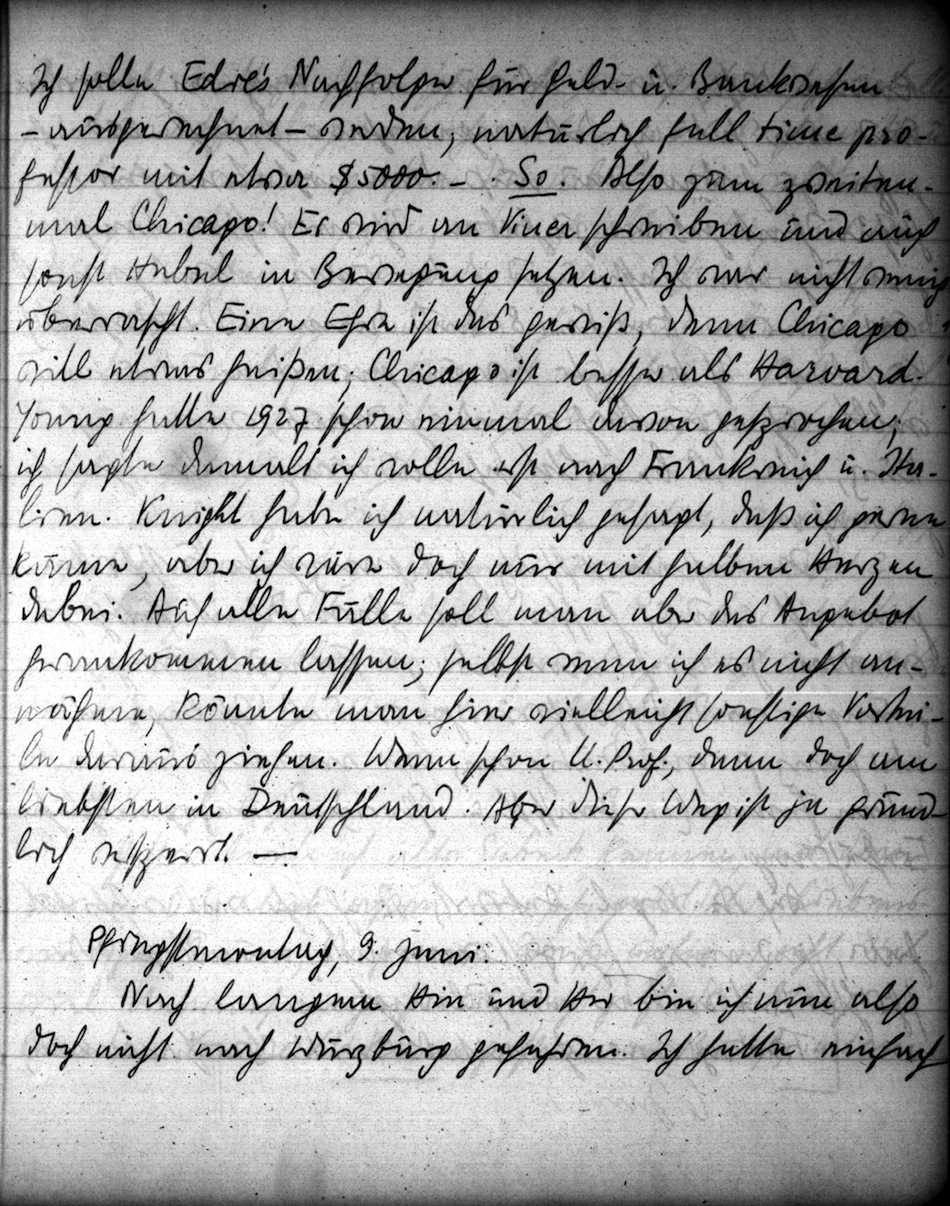 Ich solle Edie's Nachfolger für Geld- u. Bankwesen
– ausgerechnet – werden, natürlich full time pro-
fessor mit etwa $ 5000.– . So. Also zum zweiten-
mal Chicago! Er wird an Viner schreiben und auch
sonst Hebel in Bewegung setzen. Ich war nicht wenig
überrascht. Eine Ehre ist das gewiß, denn Chicago
will etwas heißen; Chicago ist besser als Harvard.
Young hatte 1927 schon einmal davon gesprochen;
ich sagte damals ich wolle erst nach Frankreich u. Ita-
lien. Knight habe ich natürlich gesagt, daß ich gerne
käme, aber ich wäre doch nur mit halbem Herzen
dabei. Auf alle Fälle soll man aber das Angebot
herankommen lassen; selbst wenn ich es nicht an-
nähme, könnte man hier vielleicht sonstige Vortei-
le daraus ziehen. Wenn schon U. Prof., dann doch am
liebsten in Deutschland. Aber dieser Weg ist ja gründ-
lich versperrt. —
Pfingstmontag, 9. Juni.
Nach langem Hin und Her bin ich nun also
doch nicht nach Würzburg gefahren. Ich hatte einfach